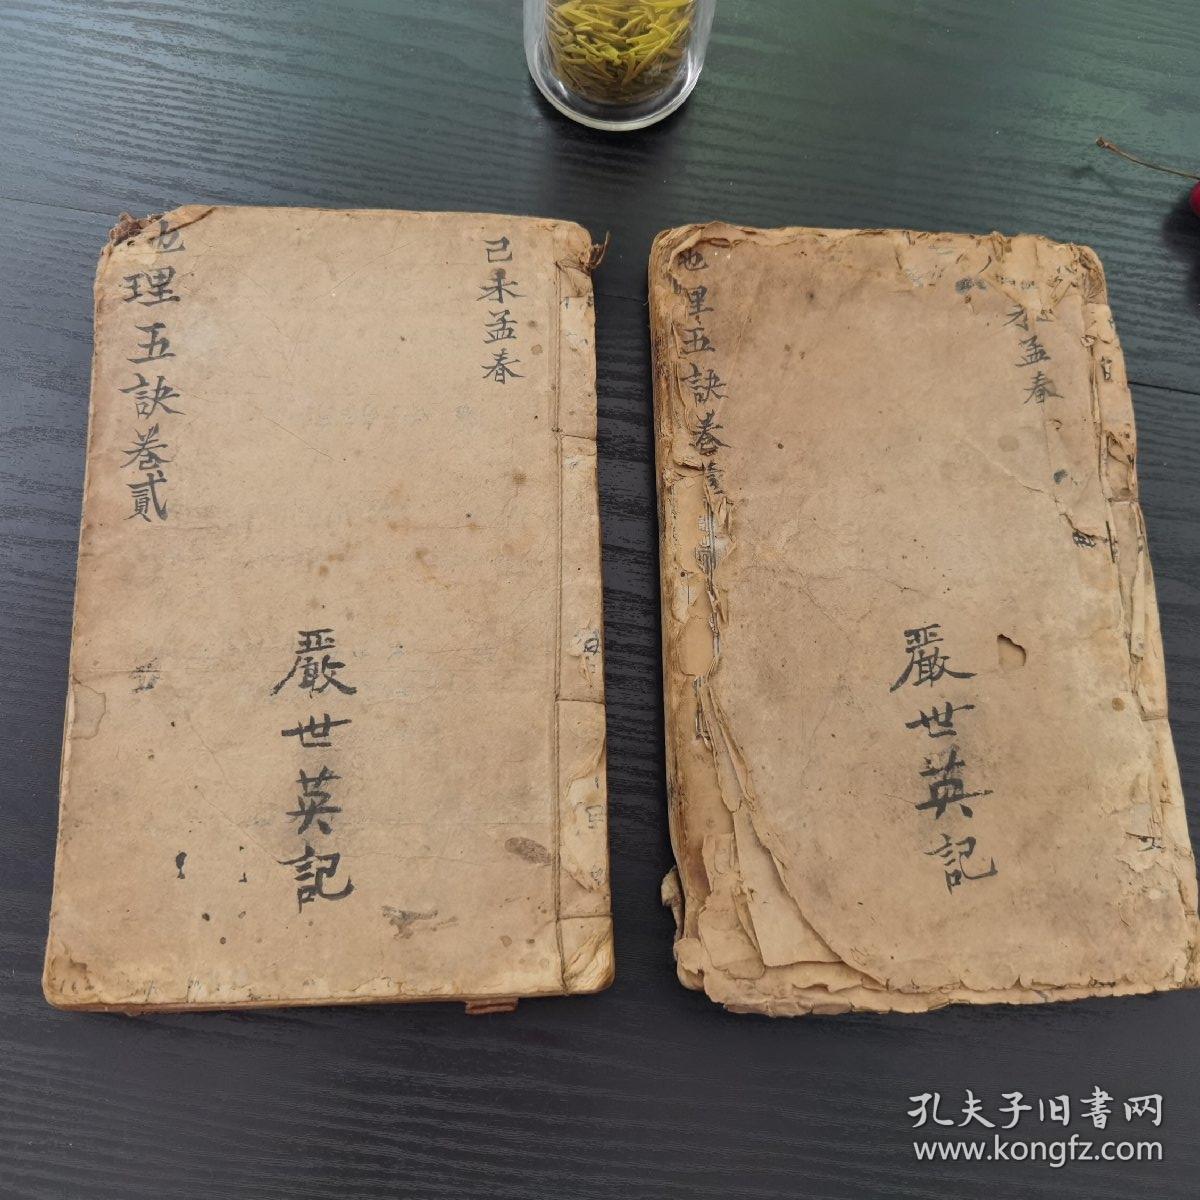 己未孟春
地理五訣卷貳
嚴世英記
未孟春
地理五訣卷壹
嚴世英記
孔夫子旧書网
www.kongfz.com